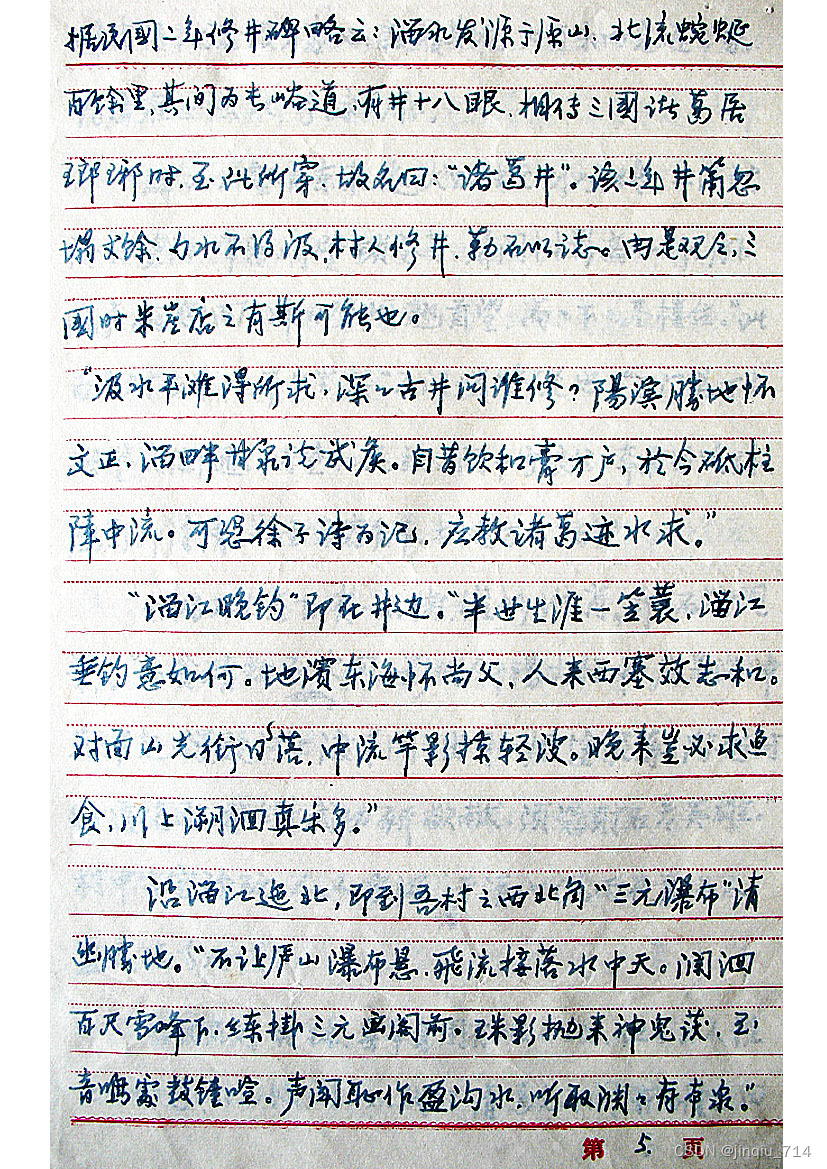 据民國二年修井碑略云：淄水发源于原山，北流蜿蜒
百馀里，其间为长峪道，有井十八眼，相传三國诸葛居
瑯琊时，至此所穿，故名曰：“诸葛井”。该二年井筒忽
塌丈馀，为水不得汲，村人修井，勒石以志。由是观之，三
國时朱崖店之有斯可能也。
“汲水平滩得所求，深之古井问谁修？陽滨勝地怀
文正，淄畔甘泉说武侯。自昔饮和膏万户，於今砥柱
障中流。可怨徐子诗为记，应教诸葛迹水求。”
“淄江晚钓”即在井边。“半世生涯一笠蓑，淄江
垂钓意如何。地濱东海怀尚父，人来西塞效志和。
对面山光衔日落，中流竿影掠轻波。晚来豈必求鱼
食，川上溯洄真乐多。”
沿淄江迤北，即到吾村之西北角“三元瀑布”清
幽勝地。“不让庐山瀑布悬，飛流接落水中天。润洄
百尺雪峰下，练掛三元画阁前。珠影抛来神鬼谈，玉
音鸣處鼓锺喧。声闻恥作盈沟水，听取渊之有本泉。”
第 5. 页
CSDN @jinqiu_714